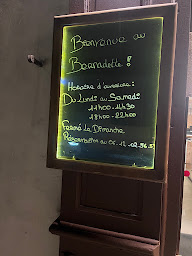 Bienvenue au
Bearnadette !
Horaire d'ouverture :
Du Lundi au Samedi
11h00 - 14h30
18h00 - 22h00
Fermé Le Dimanche
Réservation au 05.